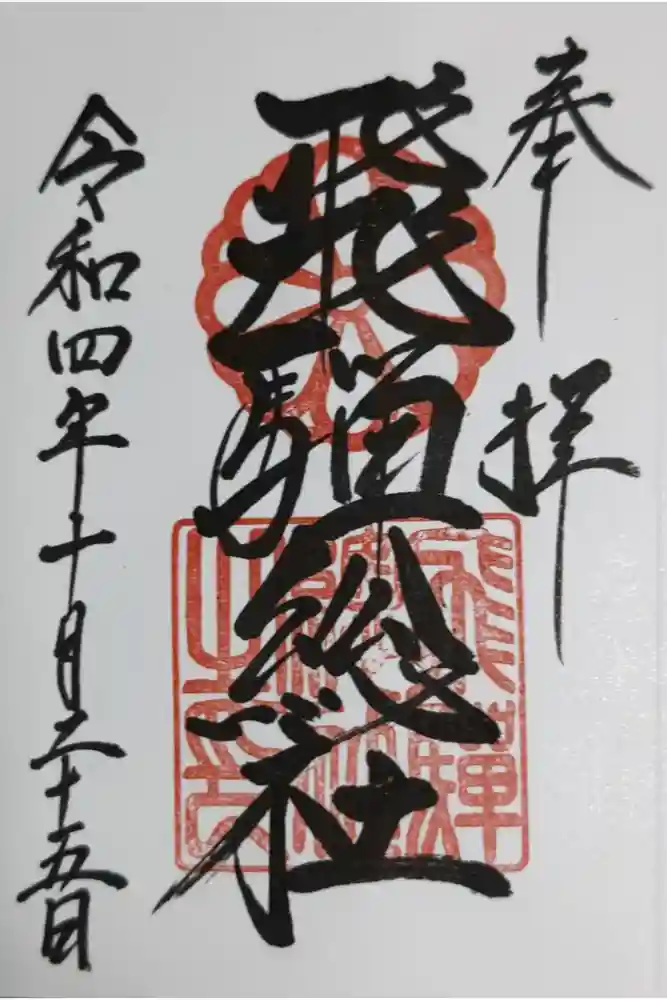 奉拝
飛騨総社
飛驒總社之印
令和四年十月二十五日